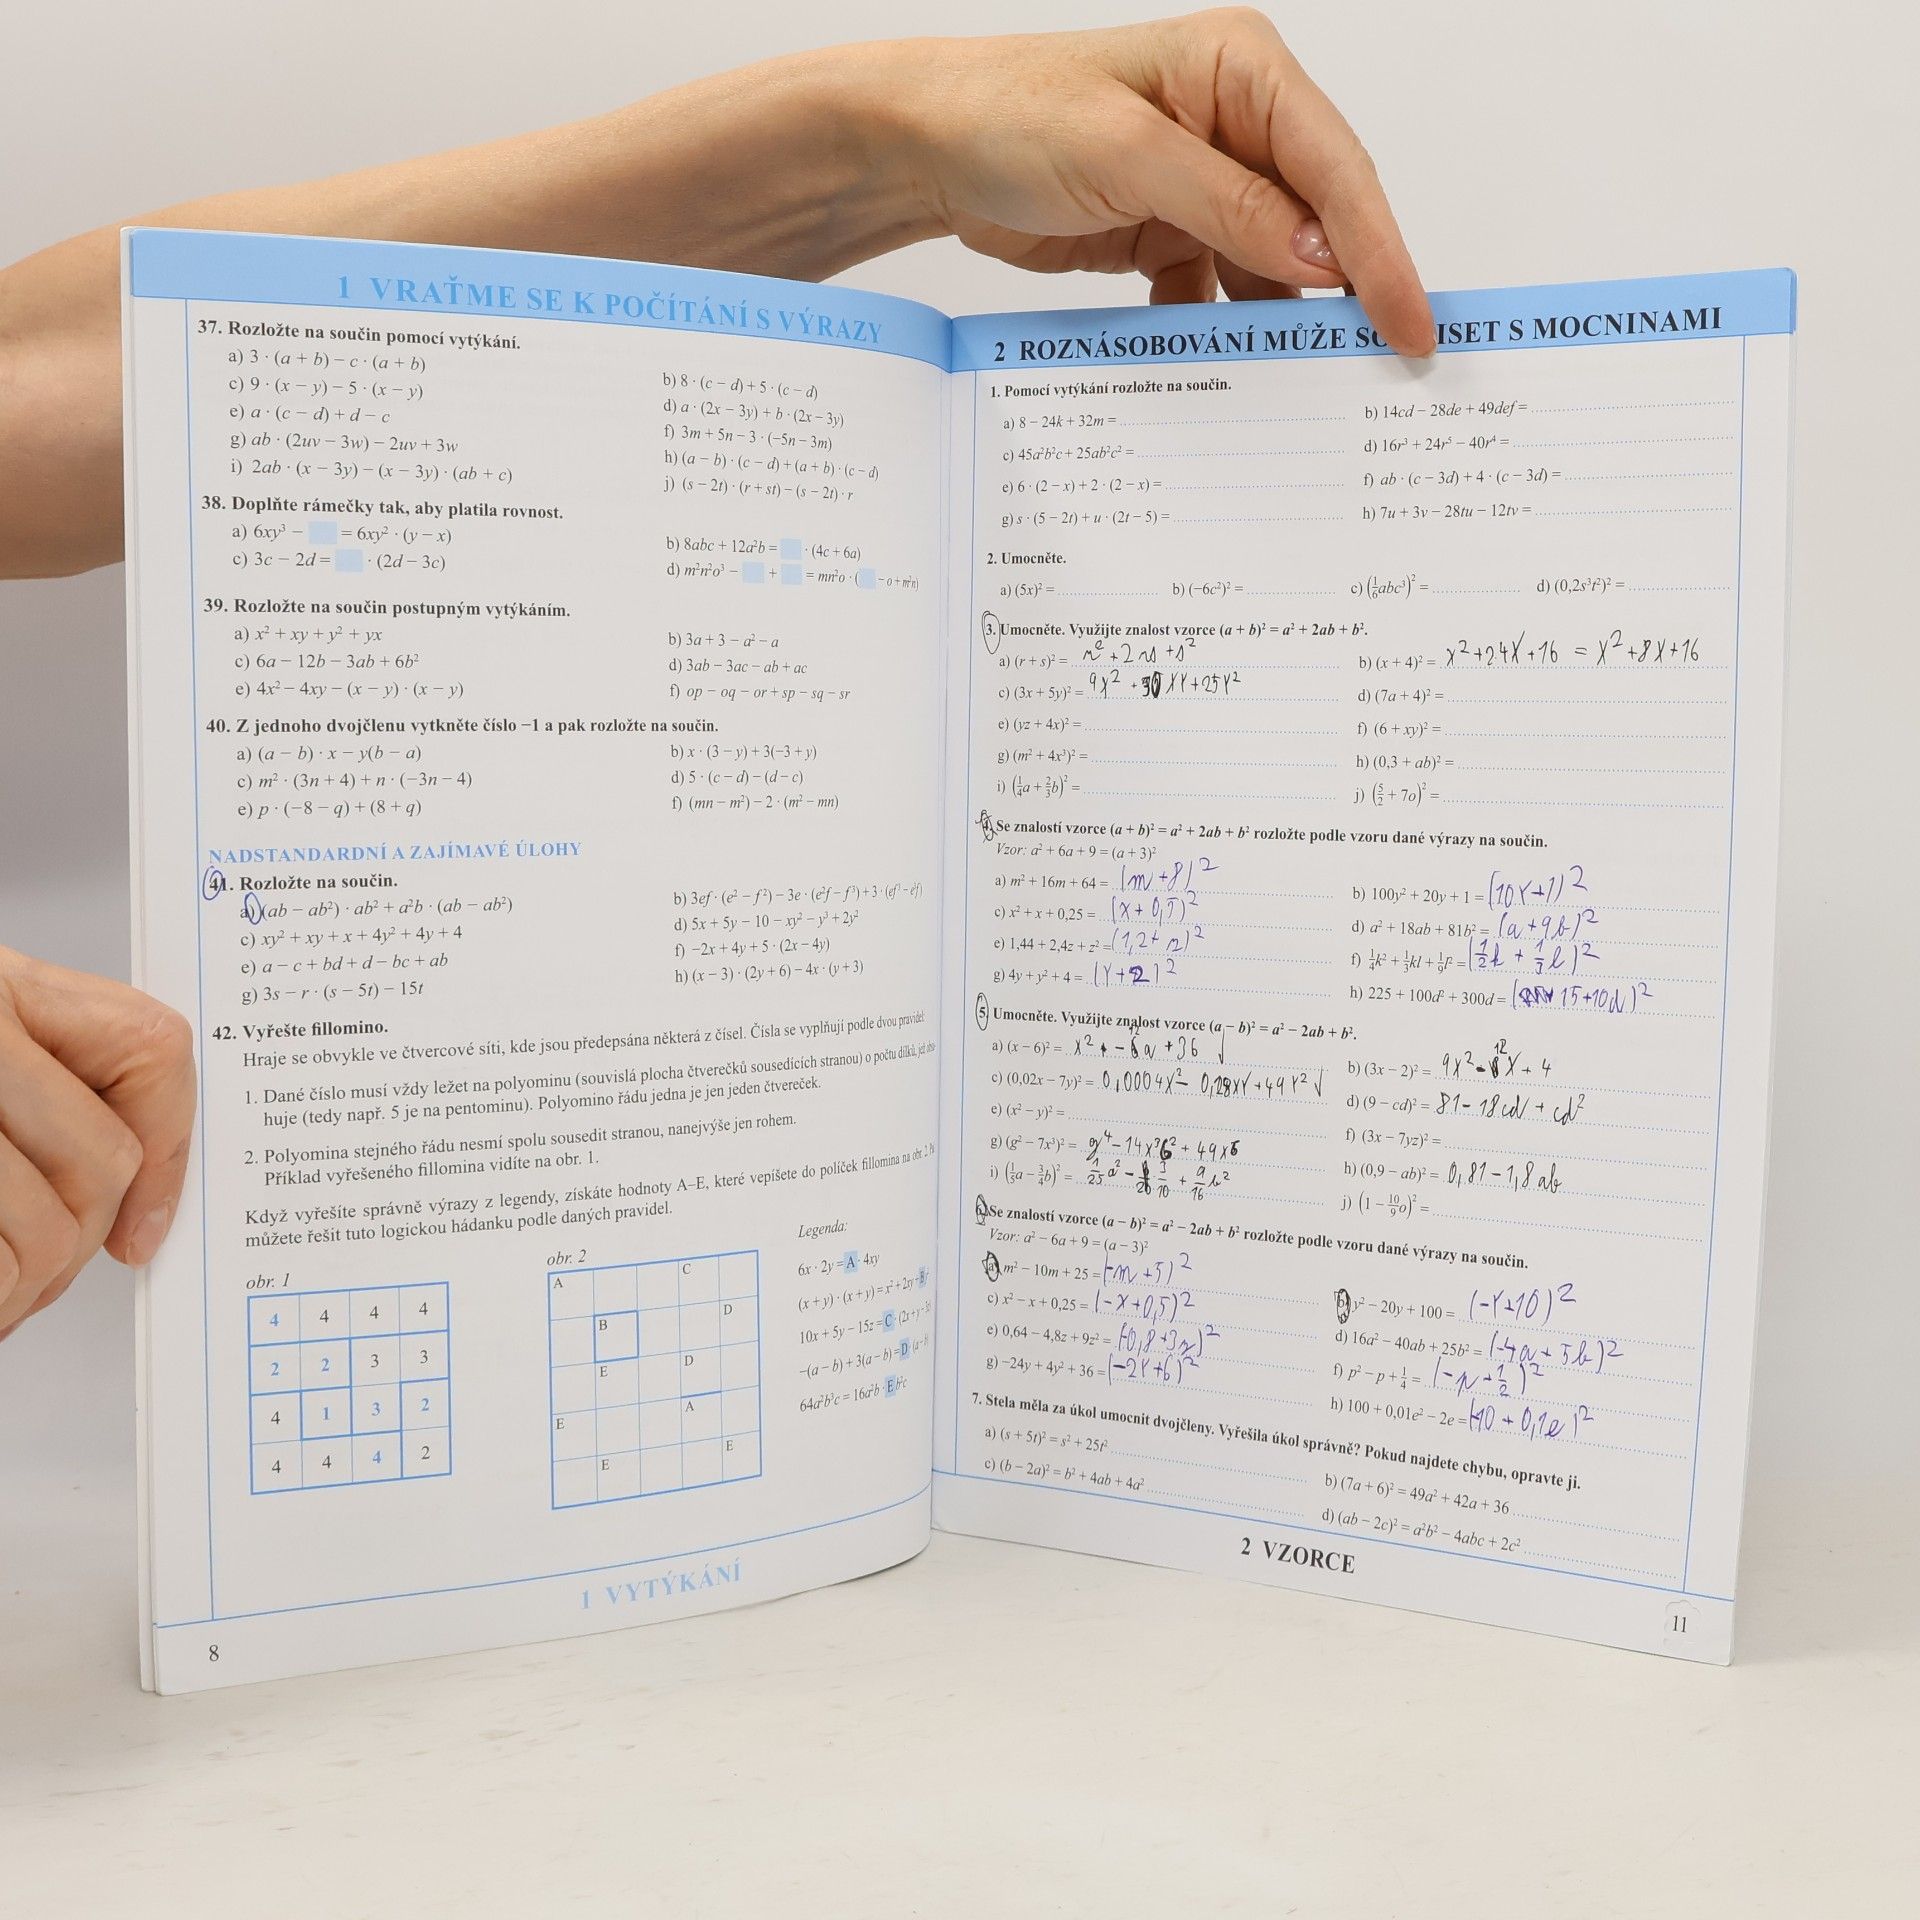 1 VRAŤME SE K POČÍTÁNÍ S VÝRAZY
37. Rozložte na součin pomocí vytýkání.
a) 3 · (a + b) − c · (a + b)
b) 8 · (c − d) + 5 · (c − d)
c) 9 · (x − y) − 5 · (x − y)
d) a · (2x − 3y) + b · (2x − 3y)
e) a · (c − d) + d − c
f) 3m + 5n − 3 · (−5n − 3m)
g) ab · (2uv − 3w) − 2uv + 3w
h) (a − b) · (c − d) + (a + b) · (c − d)
i) 2ab · (x − 3y) − (x − 3y) · (ab + c)
j) (s − 2t) · (r + st) − (s − 2t) · r
38. Doplňte rámečky tak, aby platila rovnost.
a) 6xy³ − = 6xy² · (y − x)
b) 8abc + 12a²b = · (4c + 6a)
c) 3c − 2d = · (2d − 3c)
d) m²n²o³ − + = mn²o · ( − o + m²n)
39. Rozložte na součin postupným vytýkáním.
a) x² + xy + y² + yx
b) 3a + 3 − a² − a
c) 6a − 12b − 3ab + 6b²
d) 3ab − 3ac − ab + ac
e) 4x² − 4xy − (x − y) · (x − y)
f) op − oq − or + sp − sq − sr
40. Z jednoho dvojčlenu vytkněte číslo −1 a pak rozložte na součin.
a) (a − b) · x − y(b − a)
b) x · (3 − y) + 3(−3 + y)
c) m² · (3n + 4) + n · (−3n − 4)
d) 5 · (c − d) − (d − c)
e) p · (−8 − q) + (8 + q)
f) (mn − m²) − 2 · (m² − mn)
NADSTANDARDNÍ A ZAJÍMAVÉ ÚLOHY
41. Rozložte na součin.
a) (ab − ab²) · ab² + a²b · (ab − ab²)
b) 3ef · (e² − f²) − 3e · (e²f − f³) + 3 · (ef³ − e³f)
c) xy² + xy + x + 4y² + 4y + 4
d) 5x + 5y − 10 − xy² − y³ + 2y²
e) a − c + bd + d − bc + ab
f) −2x + 4y + 5 · (2x − 4y)
g) 3s − r · (s − 5t) − 15t
h) (x − 3) · (2y + 6) − 4x · (y + 3)
42. Vyřešte fillomino.
Hraje se obvykle ve čtvercové síti, kde jsou předepsána některá z čísel. Čísla se vyplňují podle dvou pravidel:
1. Dané číslo musí vždy ležet na polyominu (souvislá plocha čtverečků sousedících stranou) o počtu dílků, jež obsa-
huje (tedy např. 5 je na pentominu). Polyomino řádu jedna je jen jeden čtvereček.
2. Polyomina stejného řádu nesmí spolu sousedit stranou, nanejvýše jen rohem.
Příklad vyřešeného fillomina vidíte na obr. 1.
Když vyřešíte správně výrazy z legendy, získáte hodnoty A–E, které vepíšete do políček fillomina na obr. 2.
můžete řešit tuto logickou hádanku podle daných pravidel.
obr. 1
4 4 4 4
2 2 3 3
4 1 3 2
4 4 4 2
obr. 2
A C
B D
E D
E A
E E
Legenda:
6x · 2y = A · 4xy
(x + y) · (x + y) = x² + 2xy + B
10x + 5y − 15z = C · (2x + y − 3z
−(a − b) + 3(a − b) = D · (a − b
64a²b³c = 16a²b · E b²c
1 VYTÝKÁNÍ
8
2 ROZNÁSOBOVÁNÍ MŮŽE ISET S MOCNINAMI
1. Pomocí vytýkání rozložte na součin.
a) 8 − 24k + 32m =
b) 14cd − 28de + 49def =
c) 45a²b²c + 25ab²c² =
d) 16r³ + 24r⁵ − 40r⁴ =
e) 6 · (2 − x) + 2 · (2 − x) =
f) ab · (c − 3d) + 4 · (c − 3d) =
g) s · (5 − 2t) + u · (2t − 5) =
h) 7u + 3v − 28tu − 12tv =
2. Umocněte.
a) (5x)² = b) (−6c²)² = c) (1/6 abc³)² = d) (0,2s³t²)² =
3. Umocněte. Využijte znalost vzorce (a + b)² = a² + 2ab + b².
a) (r + s)² = r² + 2rs + s²
b) (x + 4)² = x² + 2·4x + 16 = x² + 8x + 16
c) (3x + 5y)² = 9x² + 30xy + 25y²
d) (7a + 4)² =
e) (yz + 4x)² =
f) (6 + xy)² =
g) (m² + 4x³)² =
h) (0,3 + ab)² =
i) (1/4 a + 2/3 b)² =
j) (5/2 + 7o)² =
4. Se znalostí vzorce (a + b)² = a² + 2ab + b² rozložte podle vzoru dané výrazy na součin.
Vzor: a² + 6a + 9 = (a + 3)²
a) m² + 16m + 64 = (m + 8)²
b) 100y² + 20y + 1 = (10y + 1)²
c) x² + x + 0,25 = (x + 0,5)²
d) a² + 18ab + 81b² = (a + 9b)²
e) 1,44 + 2,4z + z² = (1,2 + z)²
f) 1/4 k² + 1/3 kl + 1/9 l² = (1/2 k + 1/3 l)²
g) 4y + y² + 4 = (y + 2)²
h) 225 + 100d² + 300d = (15 + 10d)²
5. Umocněte. Využijte znalost vzorce (a − b)² = a² − 2ab + b².
a) (x − 6)² = x² + 36
b) (3x − 2)² = 9x² − 12x + 4
c) (0,02x − 7y)² = 0,0004x² − 0,28xy + 49y²
d) (9 − cd)² = 81 − 18cd + cd²
e) (x² − y)² =
f) (3x − 7yz)² =
g) (g² − 7x³)² = g⁴ − 14x³ + 49x6
h) (0,9 − ab)² = 0,81 − 1,8ab
i) (1/5 a − 3/4 b)² = 1/25 a² − 3/10 + 9/16 b²
j) (1 − 10/9 o)² =
6. Se znalostí vzorce (a − b)² = a² − 2ab + b² rozložte podle vzoru dané výrazy na součin.
Vzor: a² − 6a + 9 = (a − 3)²
a) m² − 10m + 25 = (−m + 5)²
b) y² − 20y + 100 = (−y + 10)²
c) x² − x + 0,25 = (−x + 0,5)²
d) 16a² − 40ab + 25b² = (−4a + 5b)²
e) 0,64 − 4,8z + 9z² = (−0,8 + 3z)²
f) p² − p + 1/4 = (−p + 1/2)²
g) −24y + 4y² + 36 = (−2y + 6)²
h) 100 + 0,01e² − 2e = (−10 + 0,1e)²
7. Stela měla za úkol umocnit dvojčleny. Vyřešila úkol správně? Pokud najdete chybu, opravte ji.
a) (s + 5t)² = s² + 25t²
b) (7a + 6)² = 49a² + 42a + 36
c) (b − 2a)² = b² + 4ab + 4a²
d) (ab − 2c)² = a²b² − 4abc + 2c²
2 VZORCE
11